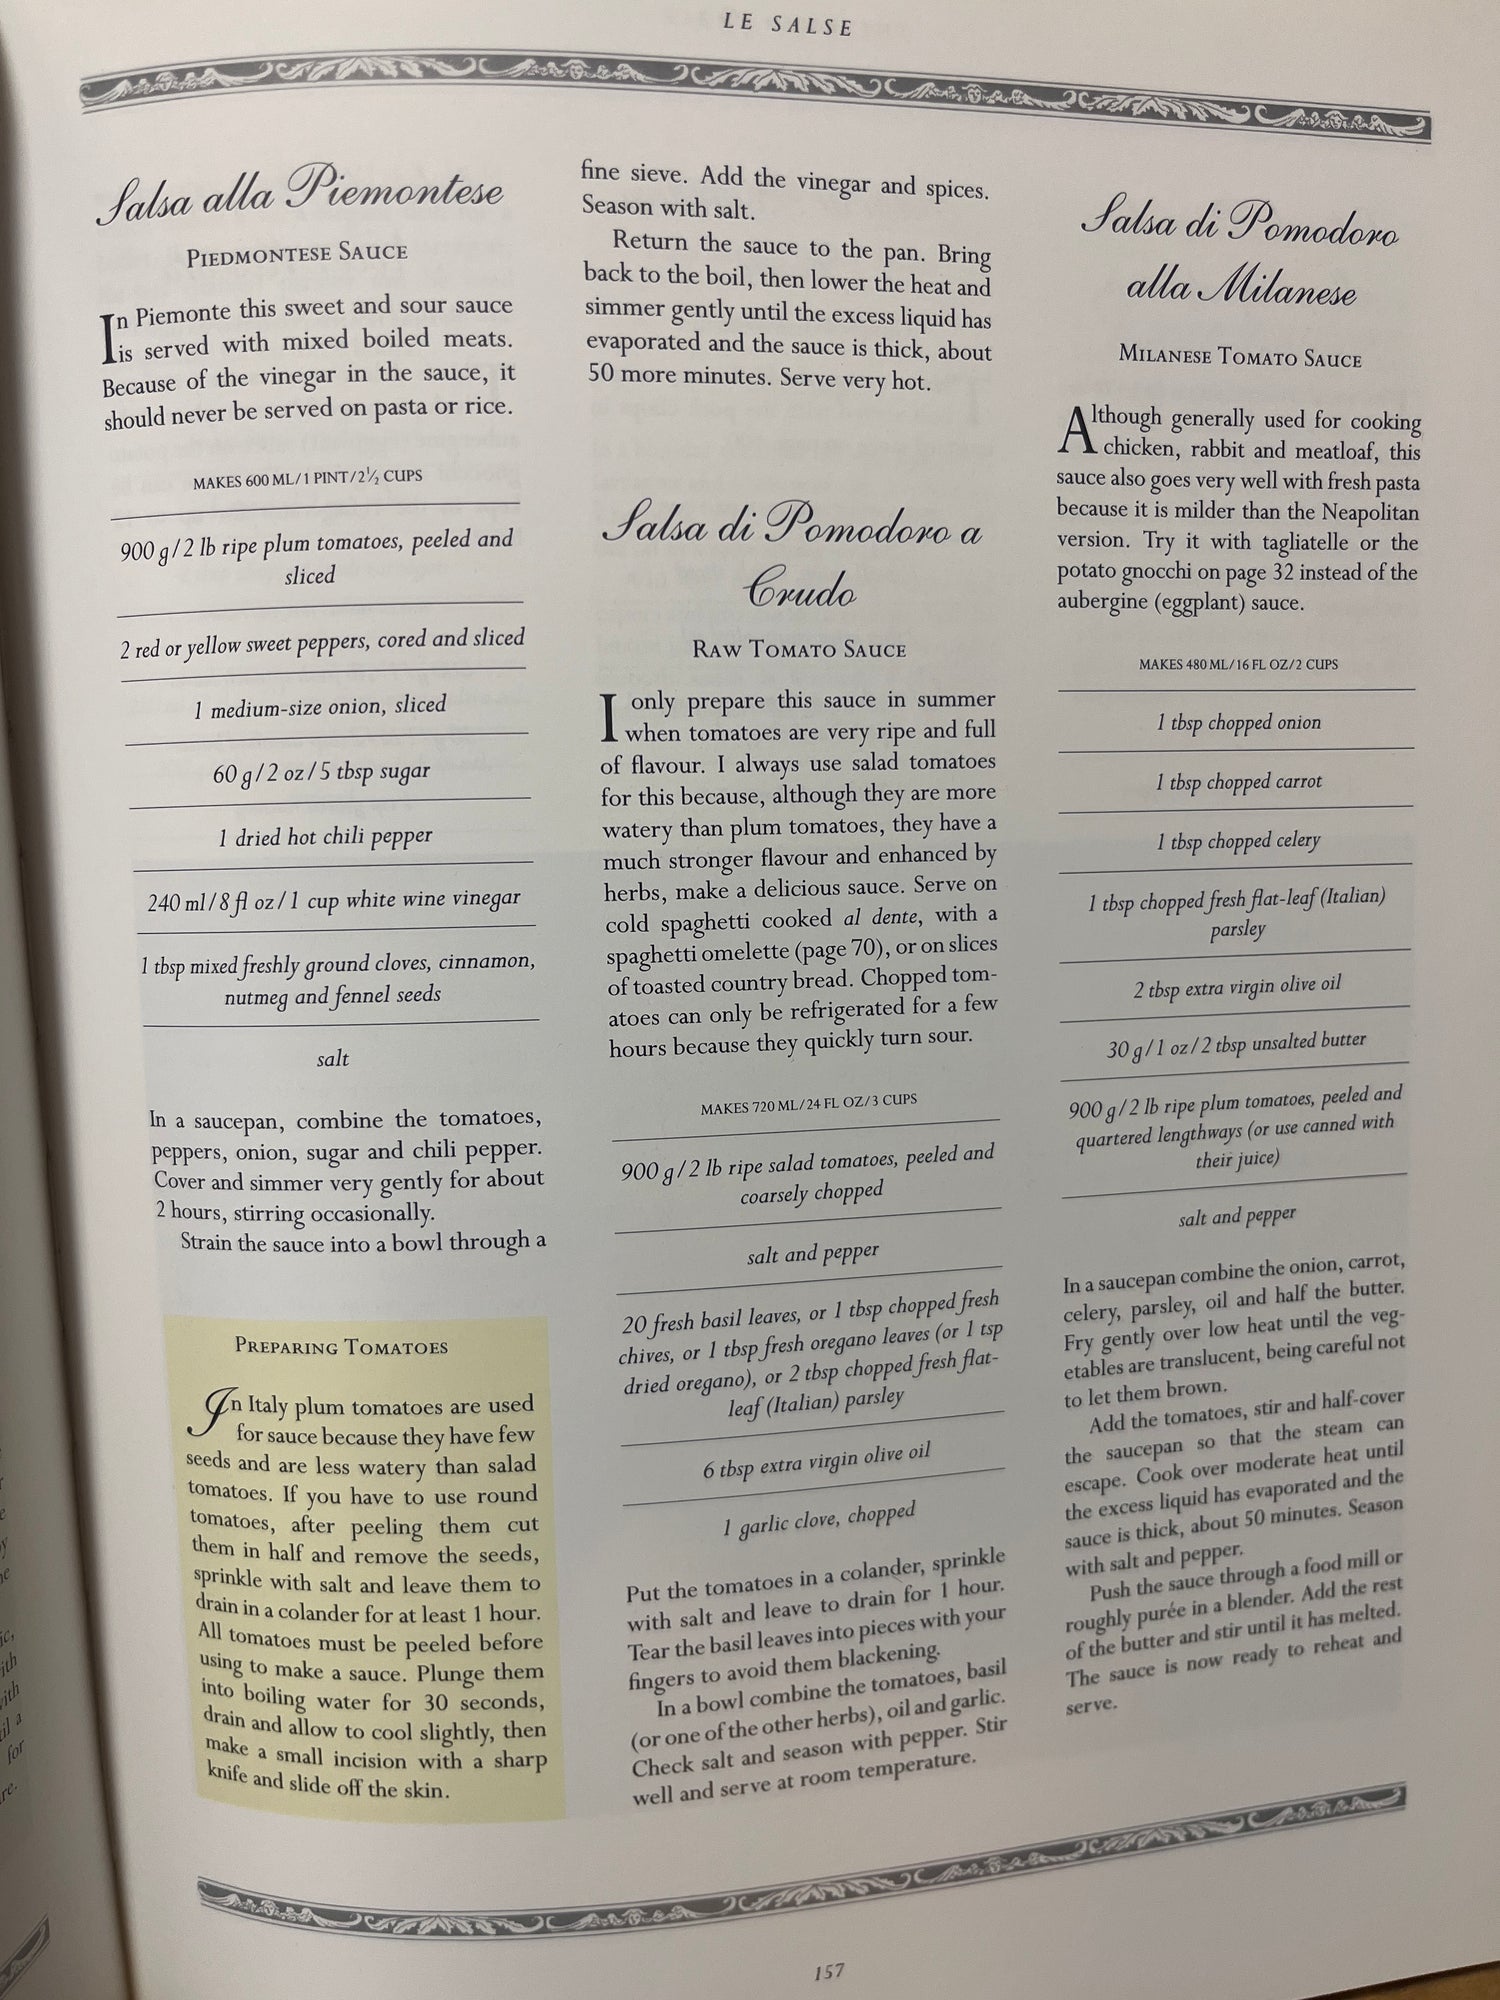 LE SALSE
Salsa alla Piemontese
PIEDMONTESE SAUCE
In Piemonte this sweet and sour sauce
is served with mixed boiled meats.
Because of the vinegar in the sauce, it
should never be served on pasta or rice.
MAKES 600 ML/1 PINT/2½ CUPS
900 g/2 lb ripe plum tomatoes, peeled and
sliced
2 red or yellow sweet peppers, cored and sliced
1 medium-size onion, sliced
60 g/2 oz/5 tbsp sugar
1 dried hot chili pepper
240 ml/8 fl oz/1 cup white wine vinegar
1 tbsp mixed freshly ground cloves, cinnamon,
nutmeg and fennel seeds
salt
In a saucepan, combine the tomatoes,
peppers, onion, sugar and chili pepper.
Cover and simmer very gently for about
2 hours, stirring occasionally.
Strain the sauce into a bowl through a
PREPARING TOMATOES
In Italy plum tomatoes are used
for sauce because they have few
seeds and are less watery than salad
tomatoes. If you have to use round
tomatoes, after peeling them cut
them in half and remove the seeds,
sprinkle with salt and leave them to
drain in a colander for at least 1 hour.
All tomatoes must be peeled before
using to make a sauce. Plunge them
into boiling water for 30 seconds,
drain and allow to cool slightly, then
make a small incision with a sharp
knife and slide off the skin.
fine sieve. Add the vinegar and spices.
Season with salt.
Return the sauce to the pan. Bring
back to the boil, then lower the heat and
simmer gently until the excess liquid has
evaporated and the sauce is thick, about
50 more minutes. Serve very hot.
Salsa di Pomodoro a
Crudo
RAW TOMATO SAUCE
I only prepare this sauce in summer
when tomatoes are very ripe and full
of flavour. I always use salad tomatoes
for this because, although they are more
watery than plum tomatoes, they have a
much stronger flavour and enhanced by
herbs, make a delicious sauce. Serve on
cold spaghetti cooked al dente, with a
spaghetti omelette (page 70), or on slices
of toasted country bread. Chopped tom-
atoes can only be refrigerated for a few
hours because they quickly turn sour.
MAKES 720 ML/24 FL OZ/3 CUPS
900 g/2 lb ripe salad tomatoes, peeled and
coarsely chopped
salt and pepper
20 fresh basil leaves, or 1 tbsp chopped fresh
chives, or 1 tbsp fresh oregano leaves (or 1 tsp
dried oregano), or 2 tbsp chopped fresh flat-
leaf (Italian) parsley
6 tbsp extra virgin olive oil
1 garlic clove, chopped
Put the tomatoes in a colander, sprinkle
with salt and leave to drain for 1 hour.
Tear the basil leaves into pieces with your
fingers to avoid them blackening.
In a bowl combine the tomatoes, basil
(or one of the other herbs), oil and garlic.
Check salt and season with pepper. Stir
well and serve at room temperature.
Salsa di Pomodoro
alla Milanese
MILANESE TOMATO SAUCE
Although generally used for cooking
chicken, rabbit and meatloaf, this
sauce also goes very well with fresh pasta
because it is milder than the Neapolitan
version. Try it with tagliatelle or the
potato gnocchi on page 32 instead of the
aubergine (eggplant) sauce.
MAKES 480 ML/16 FL OZ/2 CUPS
1 tbsp chopped onion
1 tbsp chopped carrot
1 tbsp chopped celery
1 tbsp chopped fresh flat-leaf (Italian)
parsley
2 tbsp extra virgin olive oil
30 g/1 oz/2 tbsp unsalted butter
900 g/2 lb ripe plum tomatoes, peeled and
quartered lengthways (or use canned with
their juice)
salt and pepper
In a saucepan combine the onion, carrot,
celery, parsley, oil and half the butter.
Fry gently over low heat until the veg-
etables are translucent, being careful not
to let them brown.
Add the tomatoes, stir and half-cover
the saucepan so that the steam can
escape. Cook over moderate heat until
the excess liquid has evaporated and the
sauce is thick, about 50 minutes. Season
with salt and pepper.
Push the sauce through a food mill or
roughly purée in a blender. Add the rest
of the butter and stir until it has melted.
The sauce is now ready to reheat and
serve.
157